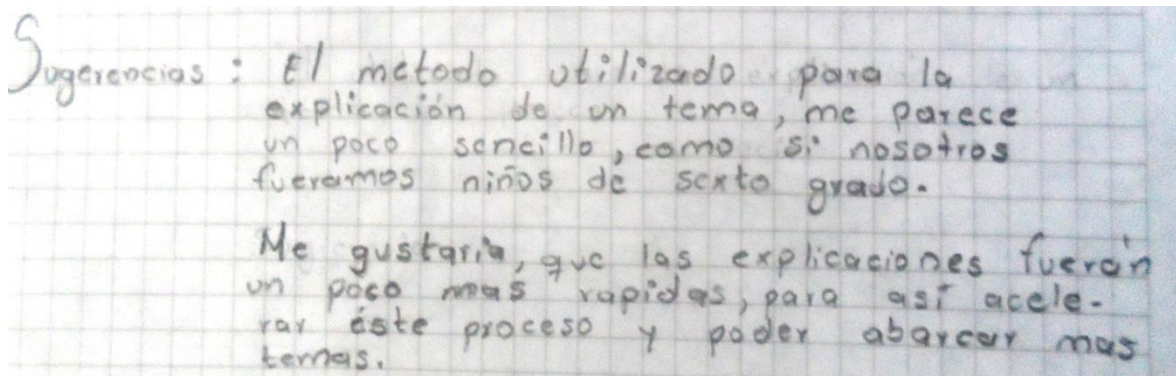 Sugerencias : El metodo utilizado para la
explicación de un tema, me parece
un poco sencillo, como si nosotros
fueramos niños de sexto grado.
Me gustaría, que las explicaciones fuerán
un poco mas rapidas, para así acele-
rar éste proceso y poder abarcar mas
temas.